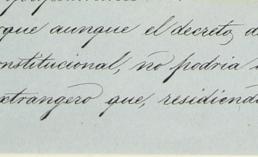 rque aunque el decreto, d
onstitucional, no podria
xtrangero que, residiend